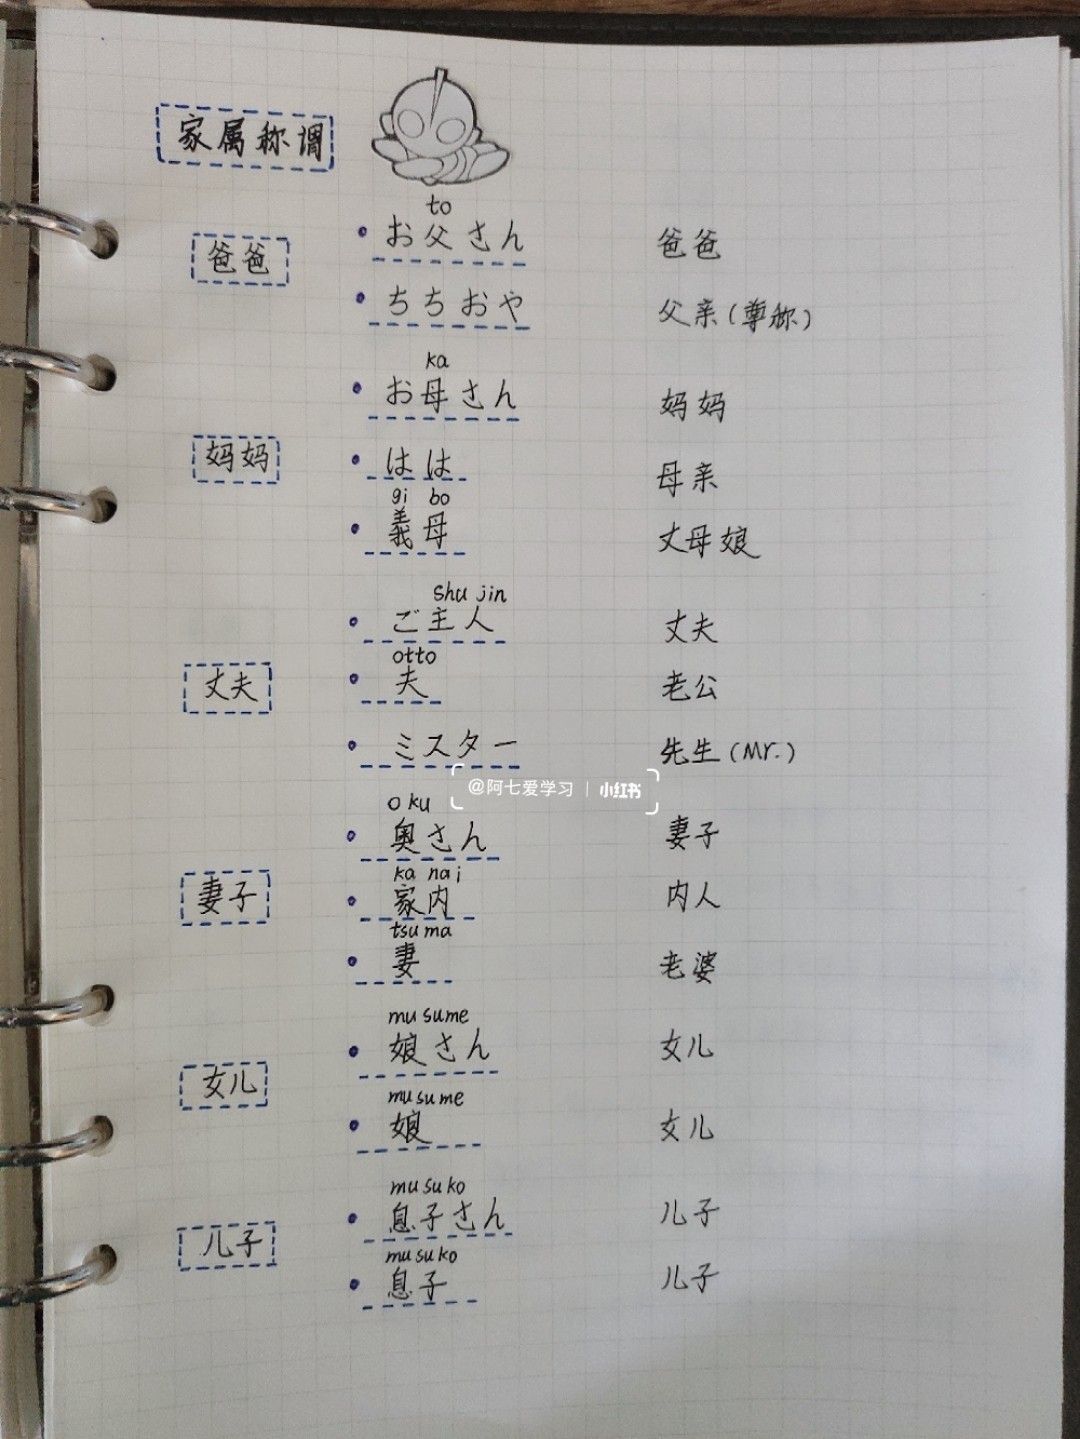 家属称谓
to
爸爸 • お父さん 爸爸
• ちちおや 父亲(尊称)
ka
• お母さん 妈妈
妈妈 • はは 母亲
gi bo
• 義母 丈母娘
shu jin
• ご主人 丈夫
otto
丈夫 • 夫 老公
• ミスター 先生(Mr.)
@阿七爱学习 | 小红书
oku
• 奥さん 妻子
ka nai
妻子 • 家内 内人
tsuma
• 妻 老婆
mu sume
女儿 • 娘さん 女儿
musume
• 娘 女儿
mu su ko
儿子 • 息子さん 儿子
mu su ko
• 息子 儿子